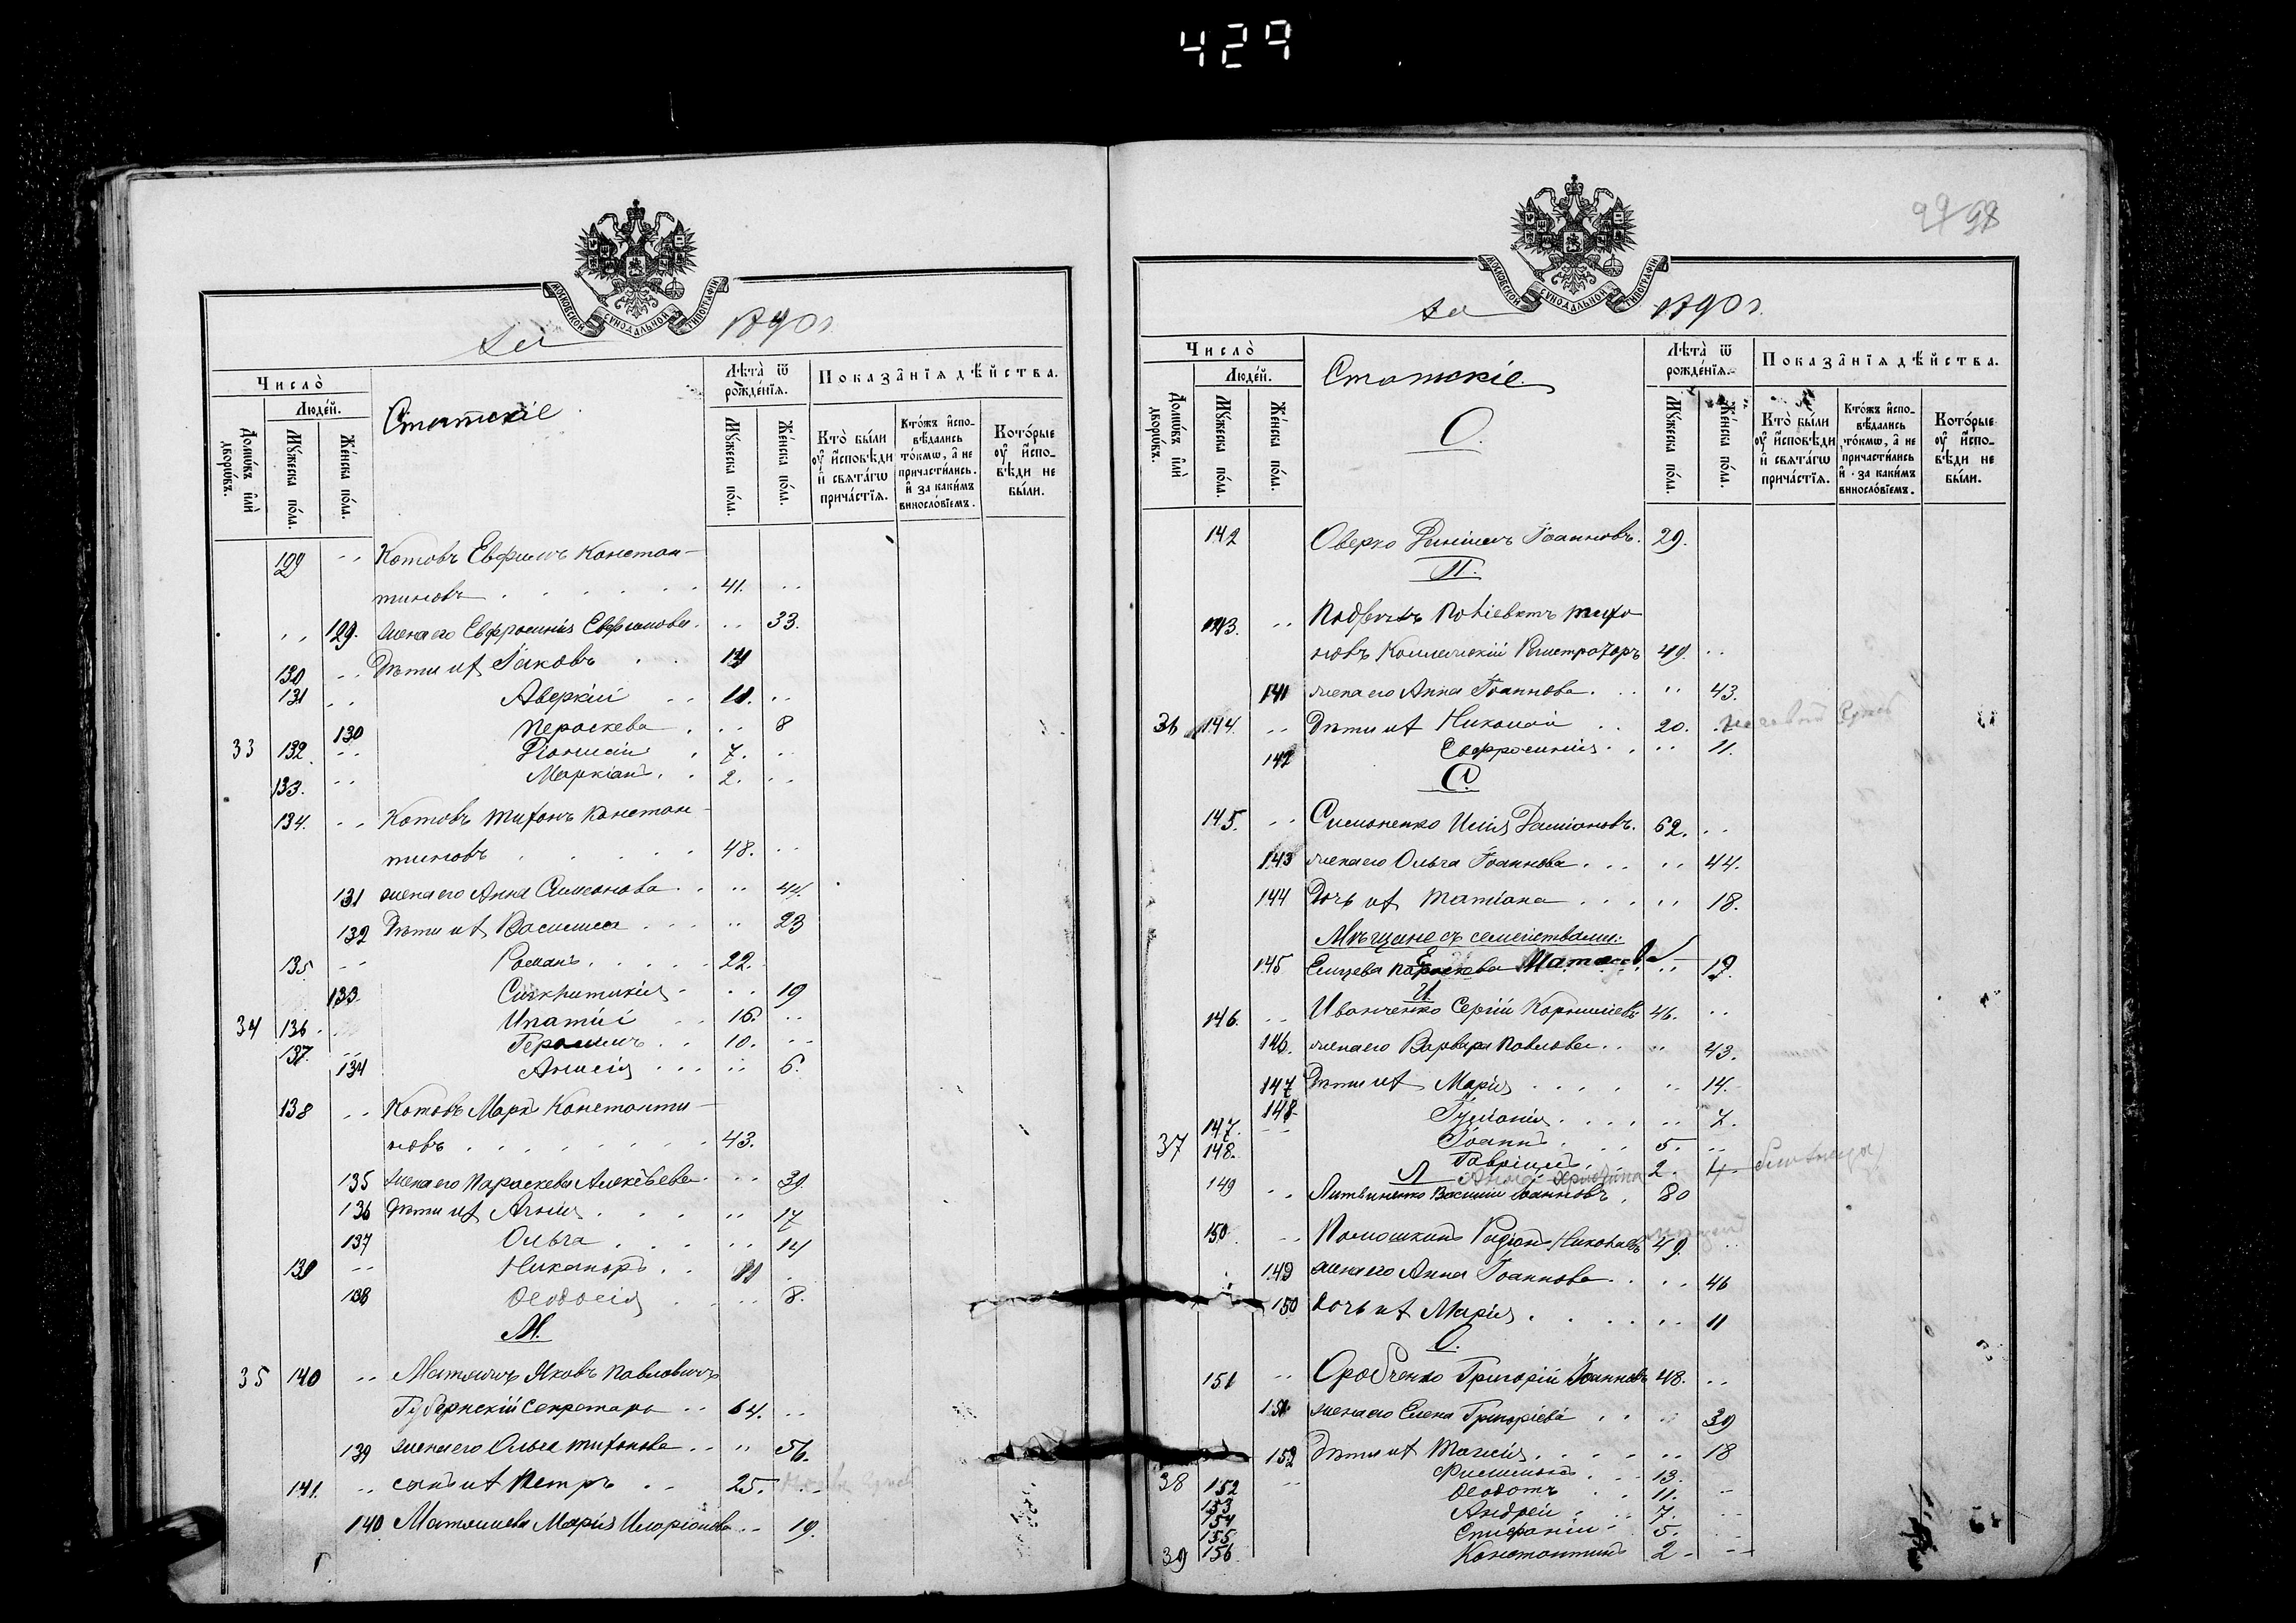 429
МОСКОВСКОЙ СѴНОДАЛЬНОЙ ТИПОГРАФІИ
за 1890 г.
Число̀
Люде́й.
Домѡ́въ и҆лѝ дворѡ́въ.
Мꙋ́жеска по́ла.
Же́нска по́ла.
Статскіе
Лѣта̀ ѿ рожде́нїѧ.
Мꙋ́жеска по́ла.
Же́нска по́ла.
Показа̂нїѧ дѣ́йства.
Кто̀ бы́ли оу҆ и҆́сповѣди и҆ свѧта́гѡ прича́стїѧ.
Кто́жъ и҆спо-вѣ́дались то́кмѡ, а҆ не причасти́лись. и҆ за каки́мъ виносло́вїемъ.
Кото́рые оу҆ и҆́спо-вѣди не бы́ли.
129 Котовъ Евфимъ Констан-
тиновъ 41.
129. жена его Евфросинія Евфимова 33.
130 Дѣти их Іаковъ 14
131 Аверкій 11.
130 Пераскева 8
33 132. Діонисій 7.
133. Маркіанъ 2.
134. Котовъ Тихонъ Констан-
тиновъ 48.
131 жена его Анна Симонова 44.
132 Дѣти их Василиса 23
135 Романъ 22.
133 Сигклитикія 19
34 136. Ипатій 16.
137. Герасимъ 10.
134 Анисія 6.
138 Котовъ Маркъ Константи-
новъ 43.
135 жена его Параскева Алексѣева 39.
136 Дѣти их Агнія 17
137 Ольга 14
139 Никаноръ 11
138 Ѳеодосія 8.
М.
35 140 Яковъ Павловичъ
Губернскій Секретарь 64.
139 жена его Ольга Тихонова 56.
141. сынъ их Петръ 25.
140 Марія Иларіонова 19.
99 98
МОСКОВСКОЙ СѴНОДАЛЬНОЙ ТИПОГРАФІИ
за 1890 г.
Число̀
Люде́й.
Домѡ́въ и҆лѝ дворѡ́въ.
Мꙋ́жеска по́ла.
Же́нска по́ла.
Статскіе.
О.
Лѣта̀ ѿ рожде́нїѧ.
Мꙋ́жеска по́ла.
Же́нска по́ла.
Показа̂нїѧ дѣ́йства.
Кто̀ бы́ли оу҆ и҆́сповѣди и҆ свѧта́гѡ прича́стїѧ.
Кто́жъ и҆спо-вѣ́дались то́кмѡ, а҆ не причасти́лись и҆ за каки́мъ виносло́вїемъ.
Кото́рые оу҆ и҆́спо-вѣди не бы́ли.
142 Оверко Даніилъ Іоанновъ. 29.
П.
143. Тихо
новъ Коллежскій Регистраторъ 49.
141 жена его Анна Іоаннова 43.
36 144. Дѣти их Николай 20.
142 Евфросинія 11.
С.
145. Симоненко Илія Даміановъ. 62.
143 жена его Ольга Іоаннова 44.
144 Дочь их Татіана 18.
Мѣщане съ семействами:
145 Параскева 19.
И
146. Иванченко Сергій Корниліевъ 46.
146. жена его Варвара Павлова 43.
147 Дѣти их Марія 14.
148 Іуліанія 7.
147. Іоаннъ 5.
37 148. Гавріилъ 2.
Л
149 Литвиненко Василій Іоанновъ. 80
150 Родіонъ Николаевъ 49.
149 жена его Анна Іоаннова 46
150 дочь их Марія 11
О.
151 Григорій Іоанновъ 48.
151 жена его Елена Григоріева 39
152 Дѣти их Таисія 18
38 152 Филимонъ 13.
153 Ѳеодотъ 11.
154 Андрей 7.
155 Епифаній 5.
39 156 Константинъ 2